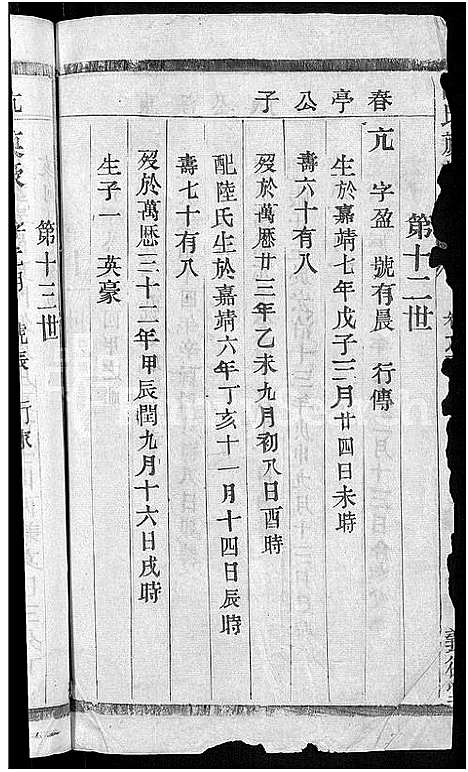 第十二世
春亭公子
亢 字盈 號有晨 行傳
生於嘉靖七年戊子三月廿四日未時
壽六十有八
歿於萬厯廿三年乙未九月初八日酉時
配陸氏生於嘉靖六年丁亥十一月十四日辰時
壽七十有八
歿於萬厯三十二年甲辰閏九月十六日戌時
生子一 英豪
第十三世